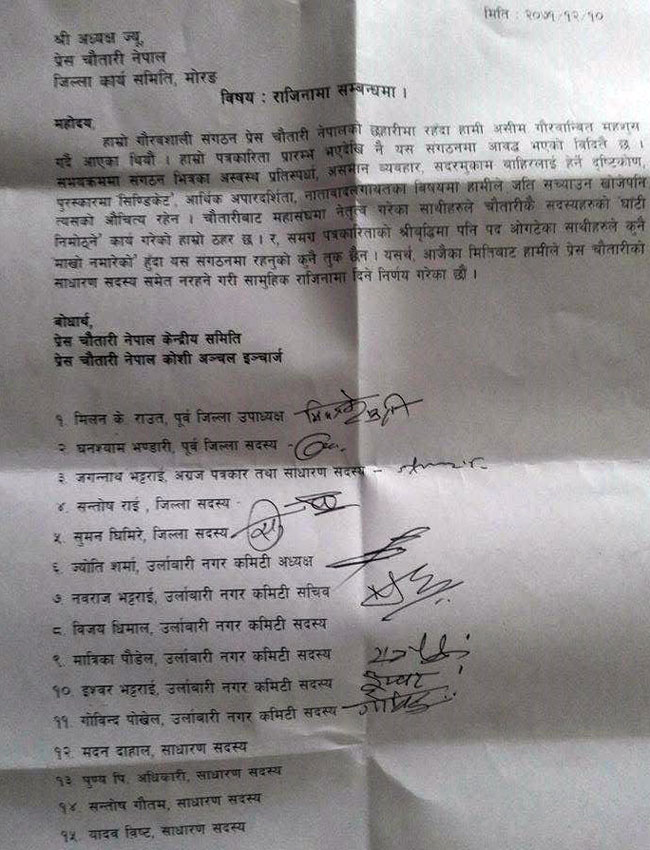 मिति : २०७१/१२/१०
श्री अध्यक्ष ज्यू,
प्रेस चौतारी नेपाल
जिल्ला कार्य समिति, मोरङ
विषय : राजिनामा सम्बन्धमा ।
महोदय,
हाम्रो गौरवशाली संगठन प्रेस चौतारी नेपालको छहारीमा रहंदा हामी असीम गौरवान्वित महशुस
गर्दै आएका थियौं । हाम्रो पत्रकारिता प्रारम्भ भएदेखि नै यस संगठनमा आवद्ध भएको विदितै छ ।
समयक्रममा संगठन भित्रका अस्वस्थ प्रतिस्पर्धा, असमान व्यवहार, सदरमुकाम बाहिरलाई हेर्ने दृष्टिकोण,
पुरस्कारमा सिण्डिकेट', आर्थिक अपारदर्शिता, नातावादलगायतका विषयमा हामीले जति सच्याउन खोजेपनि
त्यसको औचित्य रहेन । चौतारीबाट महासंघमा नेतृत्व गरेका साथीहरुले चौतारीकै सदस्यहरुको 'घाँटी
निर्मोठ्ने' कार्य गरेको हाम्रो ठहर छ । र, समग्र पत्रकारिताको श्रीवृद्धिमा पनि पद ओगटेका साथीहरुले कुनै
माखो नमारेको' हुंदा यस संगठनमा रहनुको कुनै तुक छैन । यसर्थ, आजैका मितिबाट हामीले प्रेस चौतारीको
साधारण सदस्य समेत नरहने गरी सामुहिक राजिनामा दिने निर्णय गरेका छौं ।
बोधार्थ,
प्रेस चौतारी नेपाल केन्द्रीय समिति
प्रेस चौतारी नेपाल कोशी अञ्चल इञ्चार्ज
१. मिलन के. राउत, पूर्व जिल्ला उपाध्यक्ष
२. घनश्याम भण्डारी, पूर्व जिल्ला सदस्य -
३. जगन्नाथ भट्टराई, अग्रज पत्रकार तथा साधारण सदस्य -
४. सन्तोष राई , जिल्ला सदस्य -
५. सुमन घिमिरे, जिल्ला सदस्य
६. ज्योति शर्मा, उर्लाबारी नगर कमिटी अध्यक्ष
७. नवराज भट्टराई, उर्लाबारी नगर कमिटी सचिव
८. विजय धिमाल, उर्लाबारी नगर कमिटी सदस्य
९. मात्रिका पौडेल, उर्लाबारी नगर कमिटी सदस्य
१०. इश्वर भट्टराई, उर्लाबारी नगर कमिटी सदस्य ईश्वर
११. गोविन्द पोखेल, उर्लाबारी नगर कमिटी सदस्य
१२. मदन दाहाल, साधारण सदस्य
१३. पुण्य पि. अधिकारी, साधारण सदस्य
१४. सन्तोष गौतम, साधारण सदस्य
१५. यादव विष्ट, साधारण सदस्य